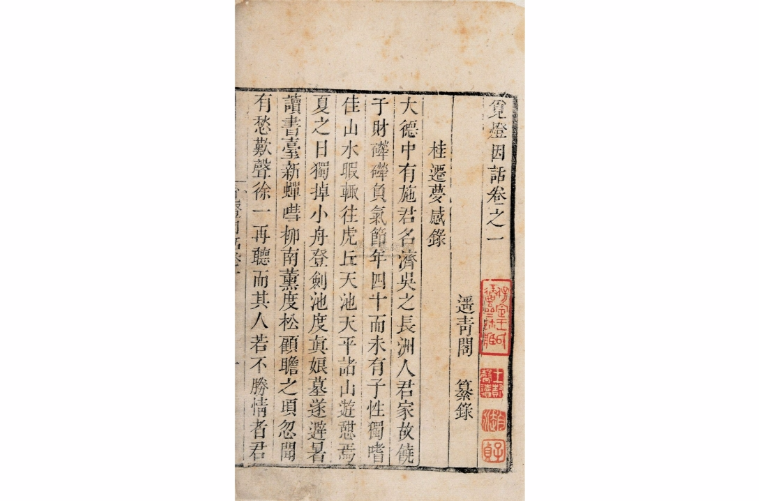 覓燈因話卷之一
遥青閣 纂錄
桂遷夢感錄
大德中有施君名濟吳之長洲人君家故饒
于財礴礴負氣節年四十而未有子性獨嗜
佳山水暇輒往虎丘天池天平諸山遊憇焉
夏之日獨掉小舟登劍池度眞娘墓遂避暑
讀書臺新蟬噆柳南薰度松顧瞻之頃忽聞
有愁歎聲徐一再聽而其人若不勝情者君